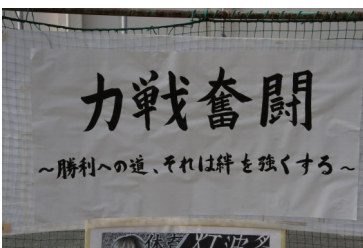 力戦奮闘
～勝利への道、それは絆を強くする～